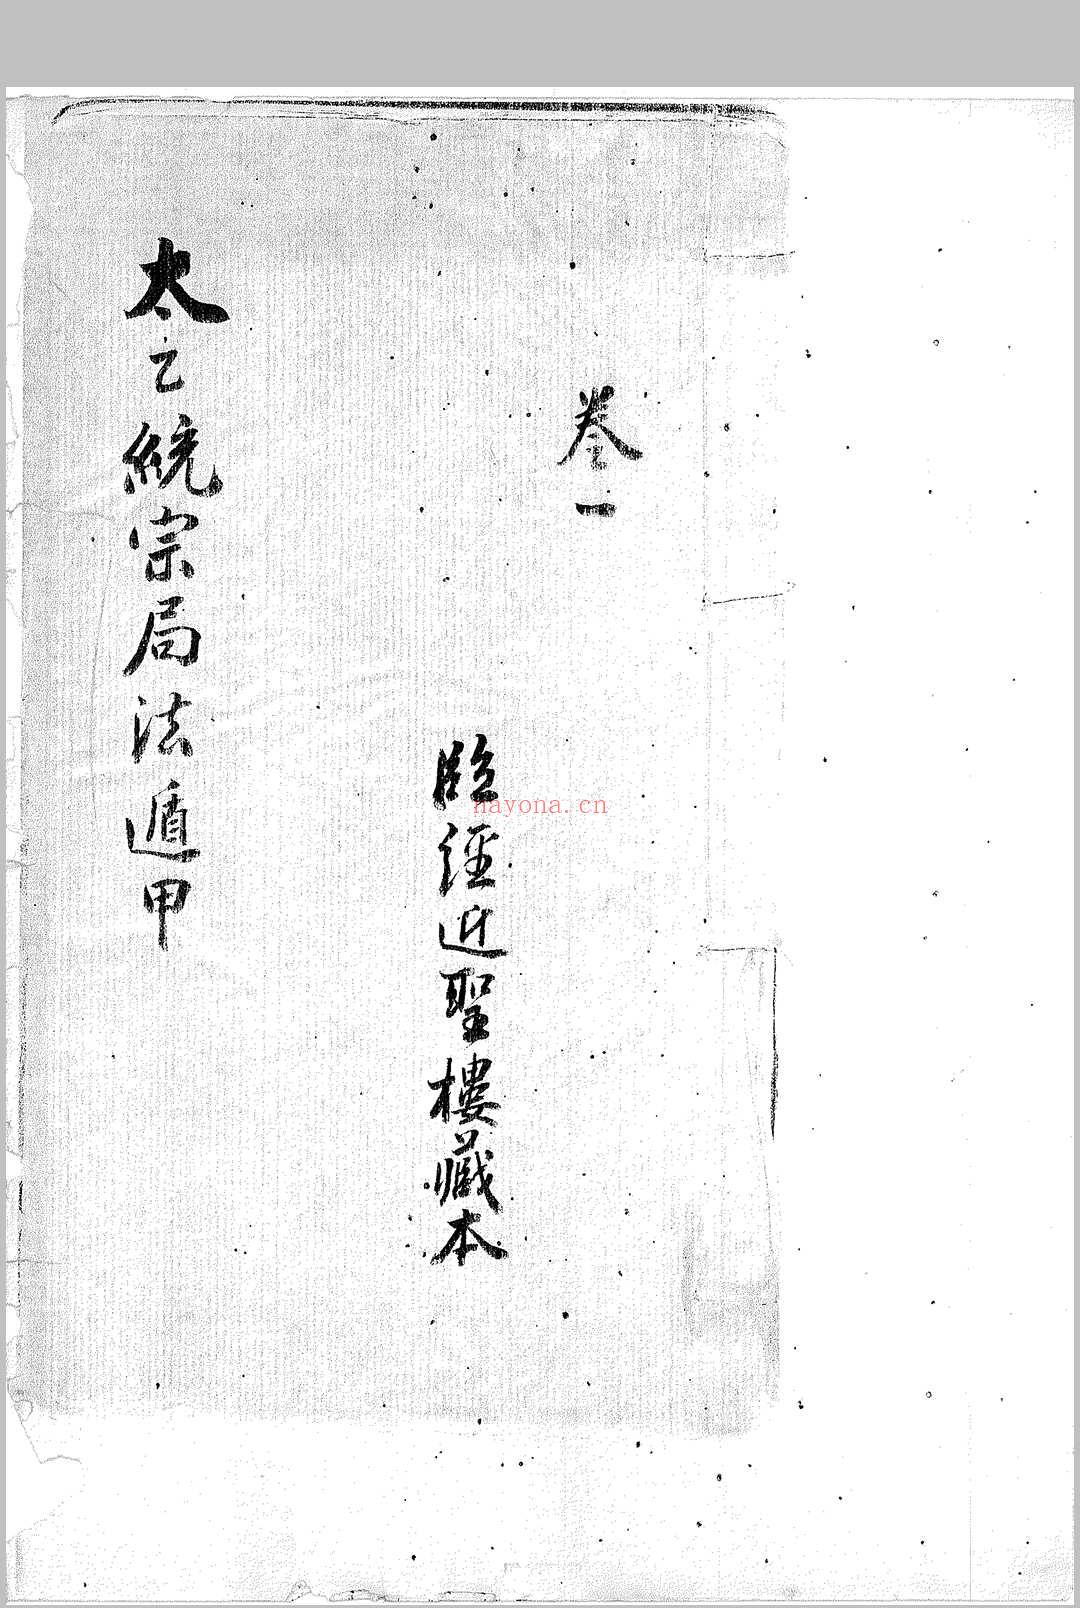 卷一
臨經近聖樓藏本
太乙統宗局法遁甲
nayona.cn